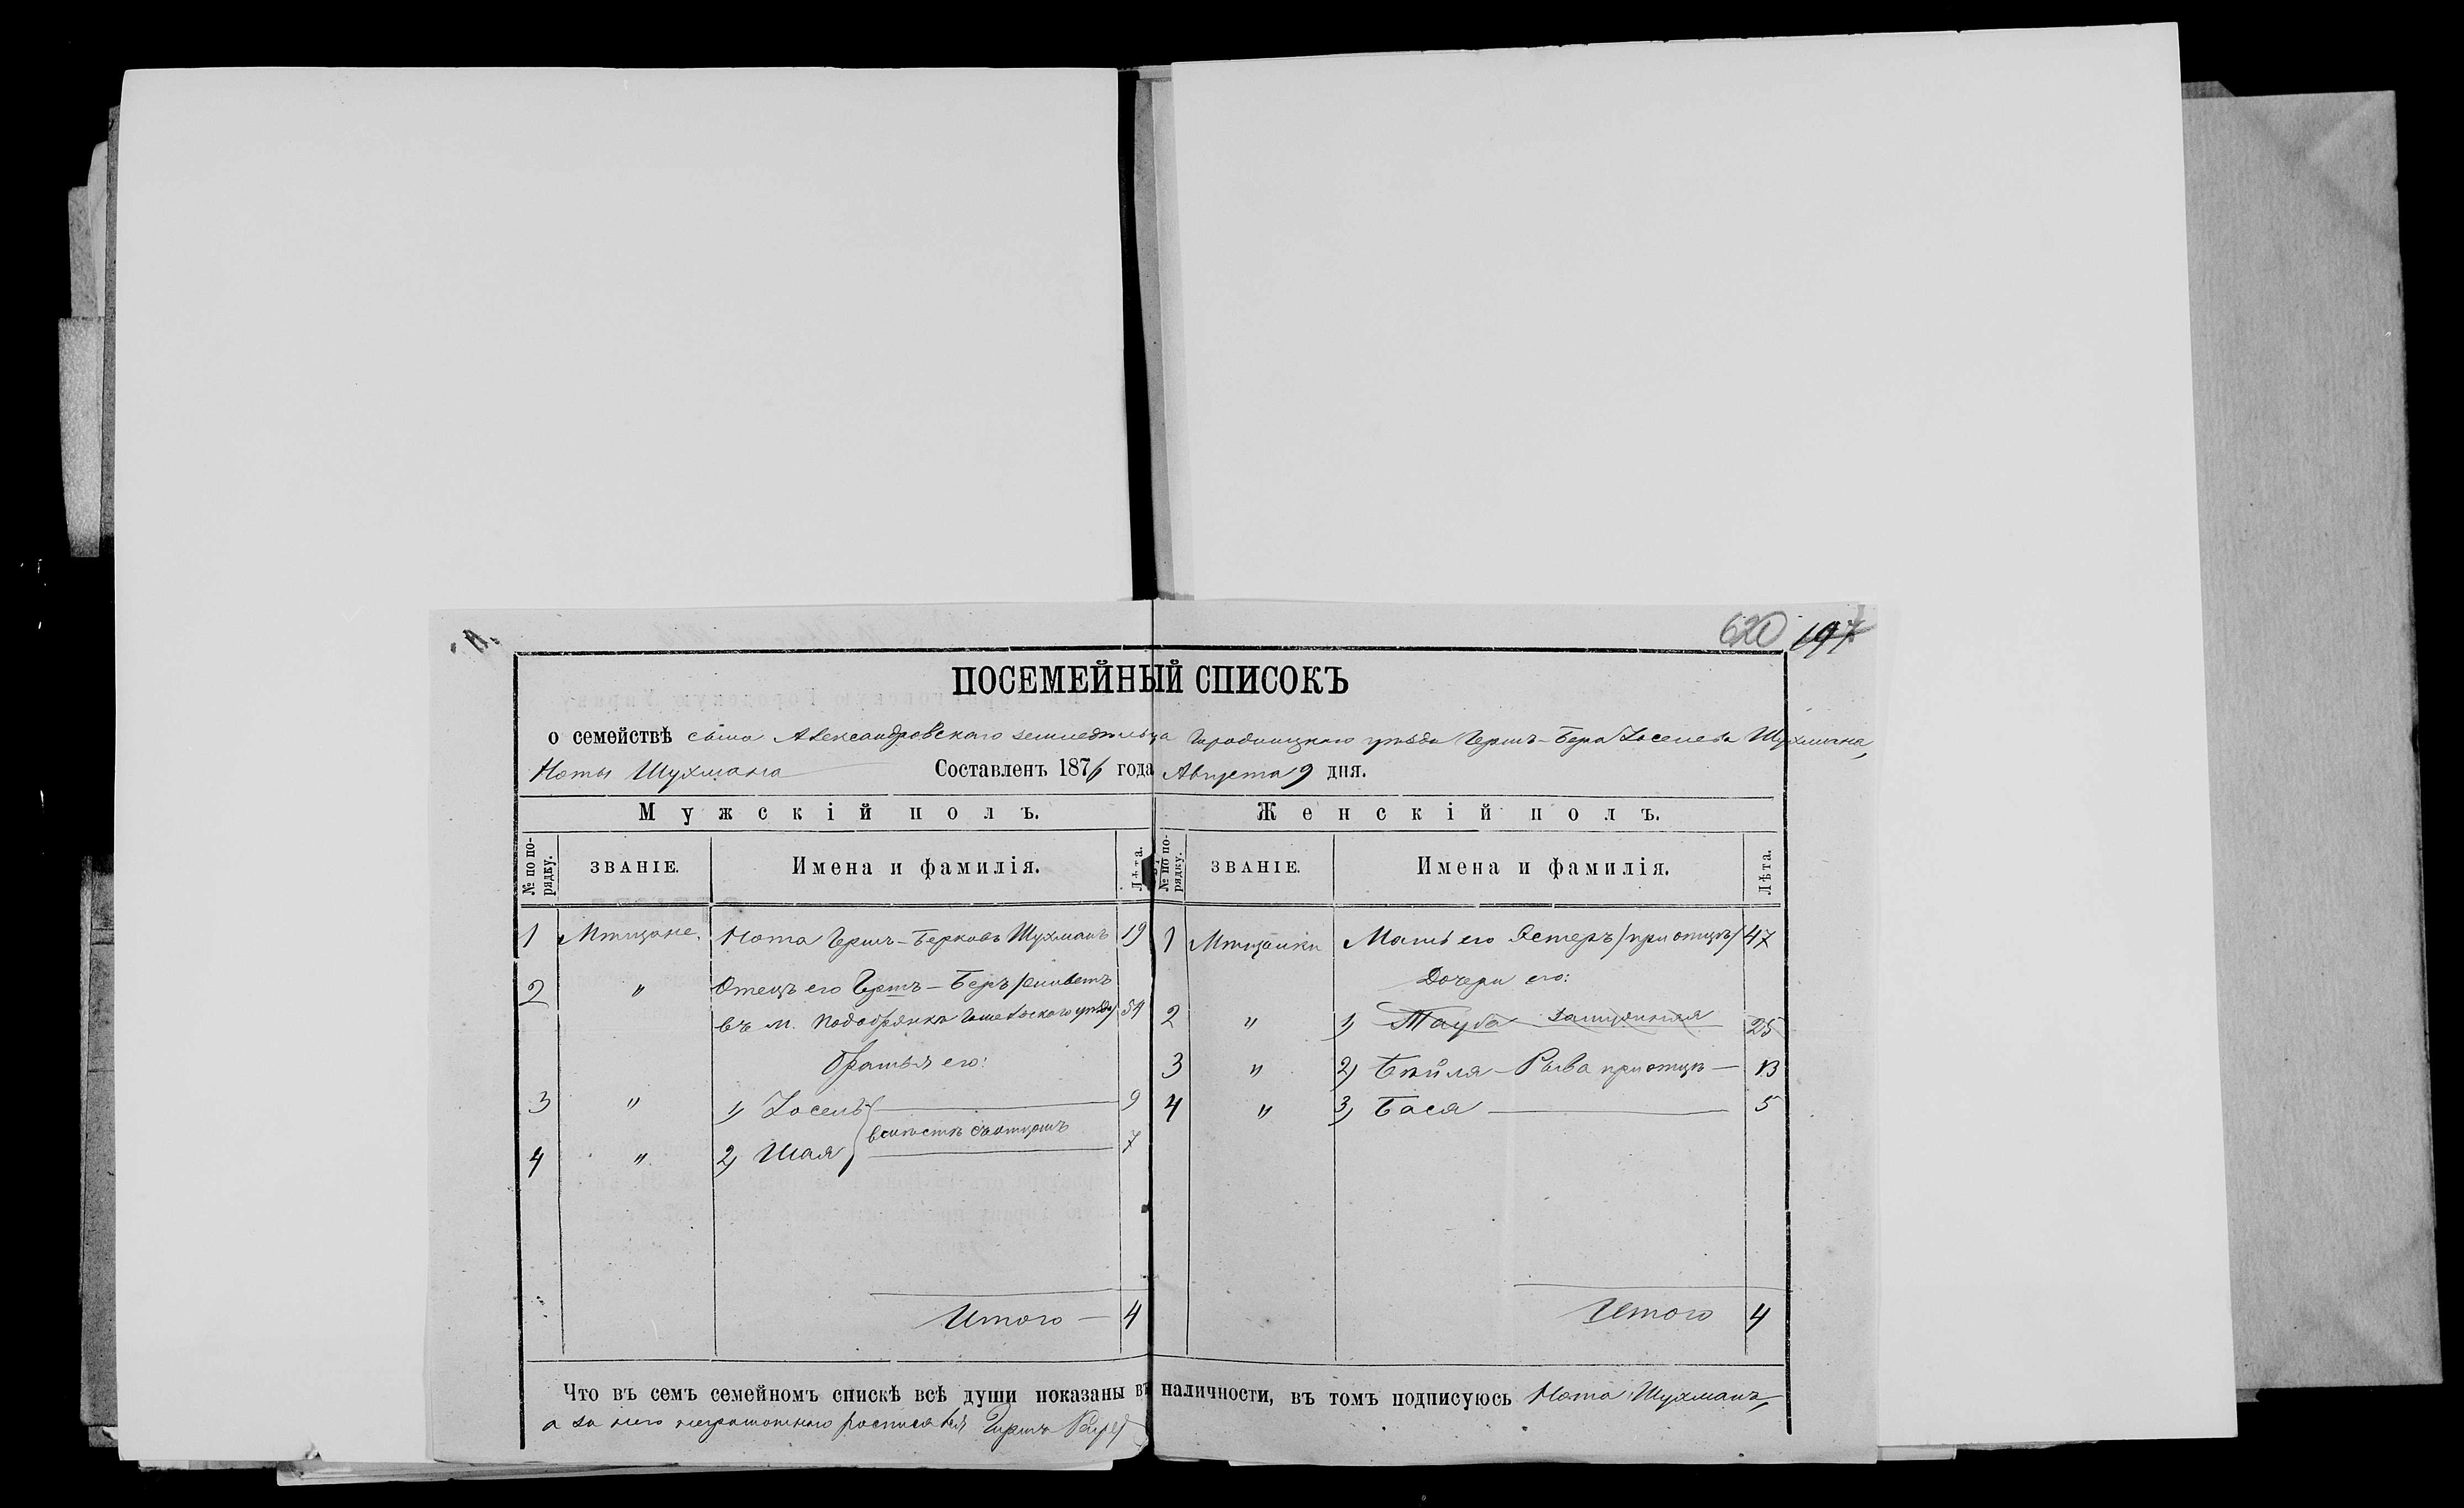 620 197
ПОСЕМЕЙНЫЙ СПИСОКЪ
о семействѣ сына Александровскаго земледѣльца Городницкаго уѣзда Герш-Бера Іоселева Шухмана,
Ноты Шухмана Составленъ 1876 года Августа 9 дня.
Мужскій полъ. Женскій полъ.
№ по по-рядку. ЗВАНІЕ. Имена и фамилія. Лѣта. № по по-рядку. ЗВАНІЕ. Имена и фамилія. Лѣта.
1 Мѣщане. Нота Герш-Берковъ Шухманъ 19
2 " Отецъ его Гершъ-Беръ /живетъ
въ м. Подобрянкѣ Гомельскаго уѣзда/ 54
Братья его:
3 " 1) Іосель 9
вмѣстѣ съ отцомъ
4 " 2) Шая 7
Итого — 4
1 Мѣщанки Мать его Эстеръ /при отцѣ/ 47
Дочери его:
2 " 1) Тауба замужняя 25
3 " 2) Бейля-Рыва при отцѣ — 13
4 " 3) Бася — 5
Итого 4
Что въ семъ семейномъ спискѣ всѣ души показаны въ наличности, въ томъ подписуюсь Нота Шухманъ,
а за него неграмотнаго росписался Гиршъ